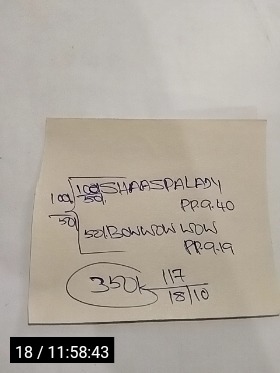 100 100 SHAASPALADY
50
P.P.9.40
50 50 BOWWOW WOW
PP.9.19
350k 117
18/10
18 / 11:58:43